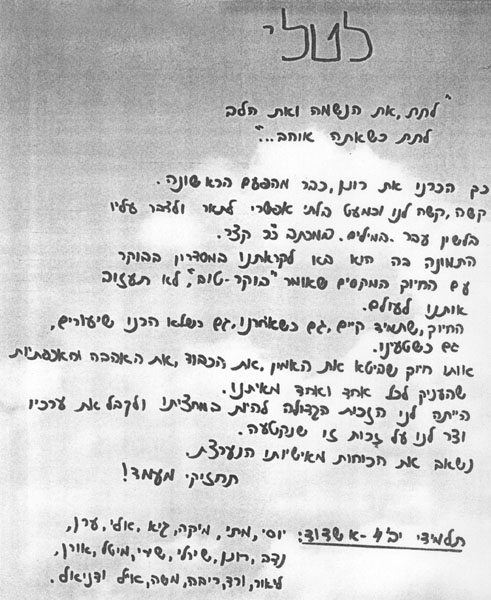 לטלי
"לתת, את הנשמה ואת הלב
לתת כשאתה אוהב..."
כך הכרנו את רונן, כבר מהפעם הראשונה.
קשה, קשה לנו וכמעט בלתי אפשרי לתאר ולדבר עליו
בלשון עבר. במילים. במכתב כ"כ קצר.
התמונה בה הוא בא לקראתנו במסדרון בבוקר
עם החיוך המקסים שאומר "בוקר-טוב", לא תעזוב
אותנו לעולם.
החיוך, שתמיד קיים, גם כשאיחרנו, גם כשלא הכנו שיעורים,
גם כשטעינו.
אותו חיוך שביטא את האמון, את הכבוד, את האהבה והאכפתיות
שהעניק לכל אחד ואחד מאיתנו.
הייתה לנו הזכות הגדולה להיות במחציתו ולקבל את ערכיו
וצר לנו על זכות זו שנקטעה.
נשאב את הכוחות מאישיותו הנערצת.
תחזיקי מעמד!
תלמידי יב'4 - אשדוד: יוסי, מתי, מיקה, גיא, אולי, ערן,
נדב, רונן, שירלי, שירי, מיטל, אורן,
ליאור, ורד, ריבה, משה, איל ודניאל.